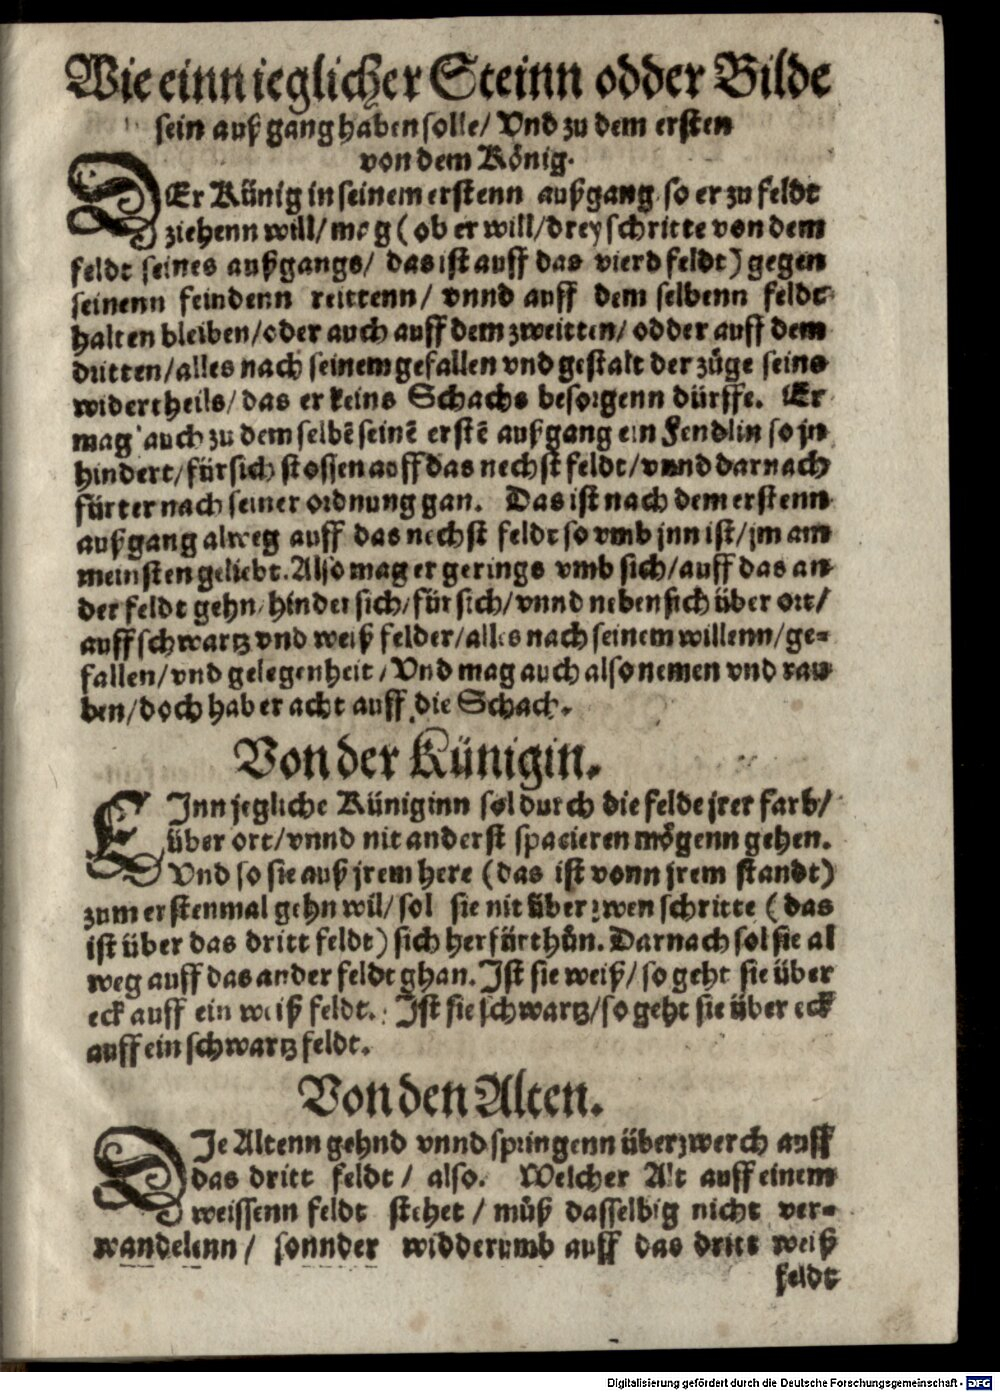 Wie einn ieglicher Steinn odder Bilde
sein außgang haben solle/ Vnd zu dem ersten
von dem König.
DEr Künig in seinem erstenn außgang so er zu feldt
ziehenn will/ mag (ob er will/drey schritte von dem
feldt seines außgangs/ das ist auff das vierd feldt) gegen
seinenn feindenn reittenn/ vnnd auff dem selbenn feldt
halten bleiben/oder auch auff dem zweitten/ odder auff dem
dritten/alles nach seinem gefallen vnd gestalt der züge seins
widertheils/ das er keins Schachs besorgenn dürffe. Er
mag auch zu dem selbē seinē erstē außgang ein Fendlin so jn
hindert/fürsich stossen auff das nechst feldt/vnnd darnach
fürter nach seiner ordnung gan. Das ist nach dem erstenn
außgang alweg auff das nechst feldt so vmb jnn ist/jm am
meinsten geliebt. Also mag er gerings vmb sich/auff das an
der feldt gehn/hindersich/fürsich/vnnd nebensich über ort/
auff schwartz vnd weiß felder/alles nach seinem willenn/ge=
fallen/vnd gelegenheit/Vnd mag auch also nemen vnd rau
ben/doch hab er acht auff die Schach.
Von der Künigin.
EJnn jegliche Küniginn sol durch die felde jrer farb/
über ort/vnnd nit anderst spacieren mögenn gehen.
Vnd so sie auß jrem here (das ist vonn jrem standt)
zum erstenmal gehn wil/ sol sie nit über zwen schritte (das
ist über das dritt feldt) sich herfürthůn. Darnach sol sie al
weg auff das ander feldt ghan. Jst sie weiß/ so geht sie über
eck auff ein weiß feldt. Jst sie schwartz/so geht sie über eck
auff ein schwartz feldt.
Von den Alten.
DJe Altenn gehnd vnnd springenn überzwerch auff
das dritt feldt/ also. Welcher Alt auff einem
weissenn feldt stehet/ můß dasselbig nicht ver=
wandelenn/ sonnder widderumb auff das dritt weiß
feldt
Digitalisierung gefördert durch die Deutsche Forschungsgemeinschaft - DFG